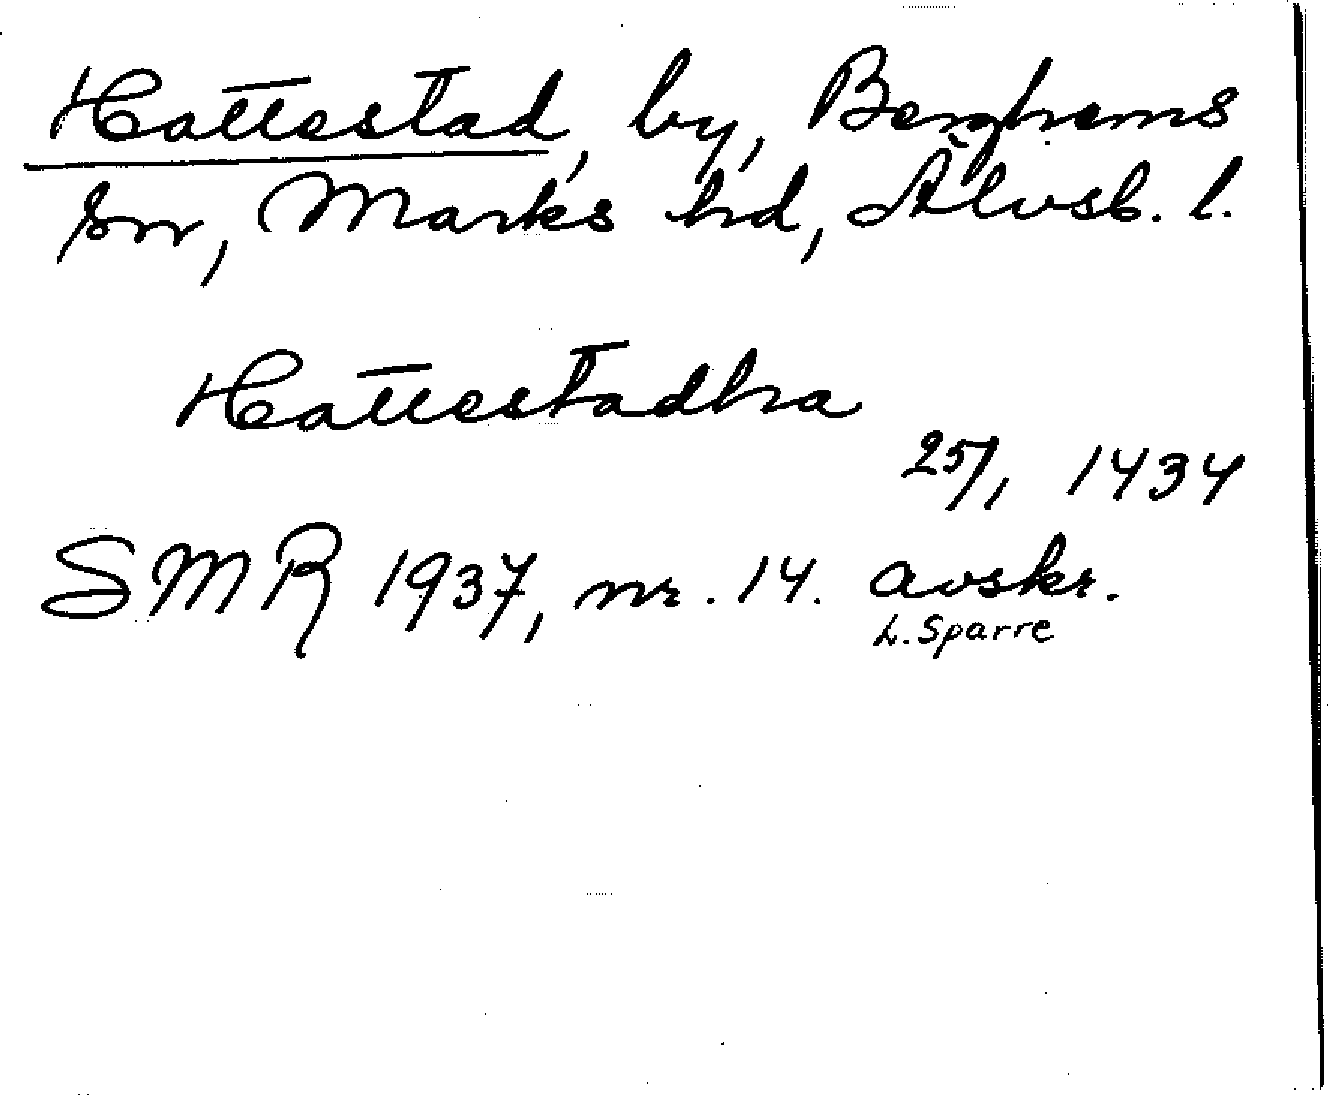 Hattestad, by, Berghems
sn, Marks hd, Älvsb. l.
Hattestadha
25/1 1434
SMR 1937, nr. 14. avskr.
L. Sparre